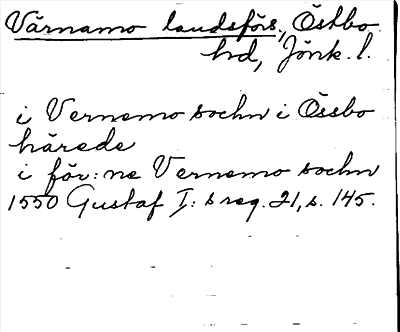 Värnamo landsförs, Östbo
hd, Jönk. l.
i Vernemo sochn i Össbo
härede
i för:ne Vernemo sochn
1550 Gustaf I:s reg. 21, s. 145.